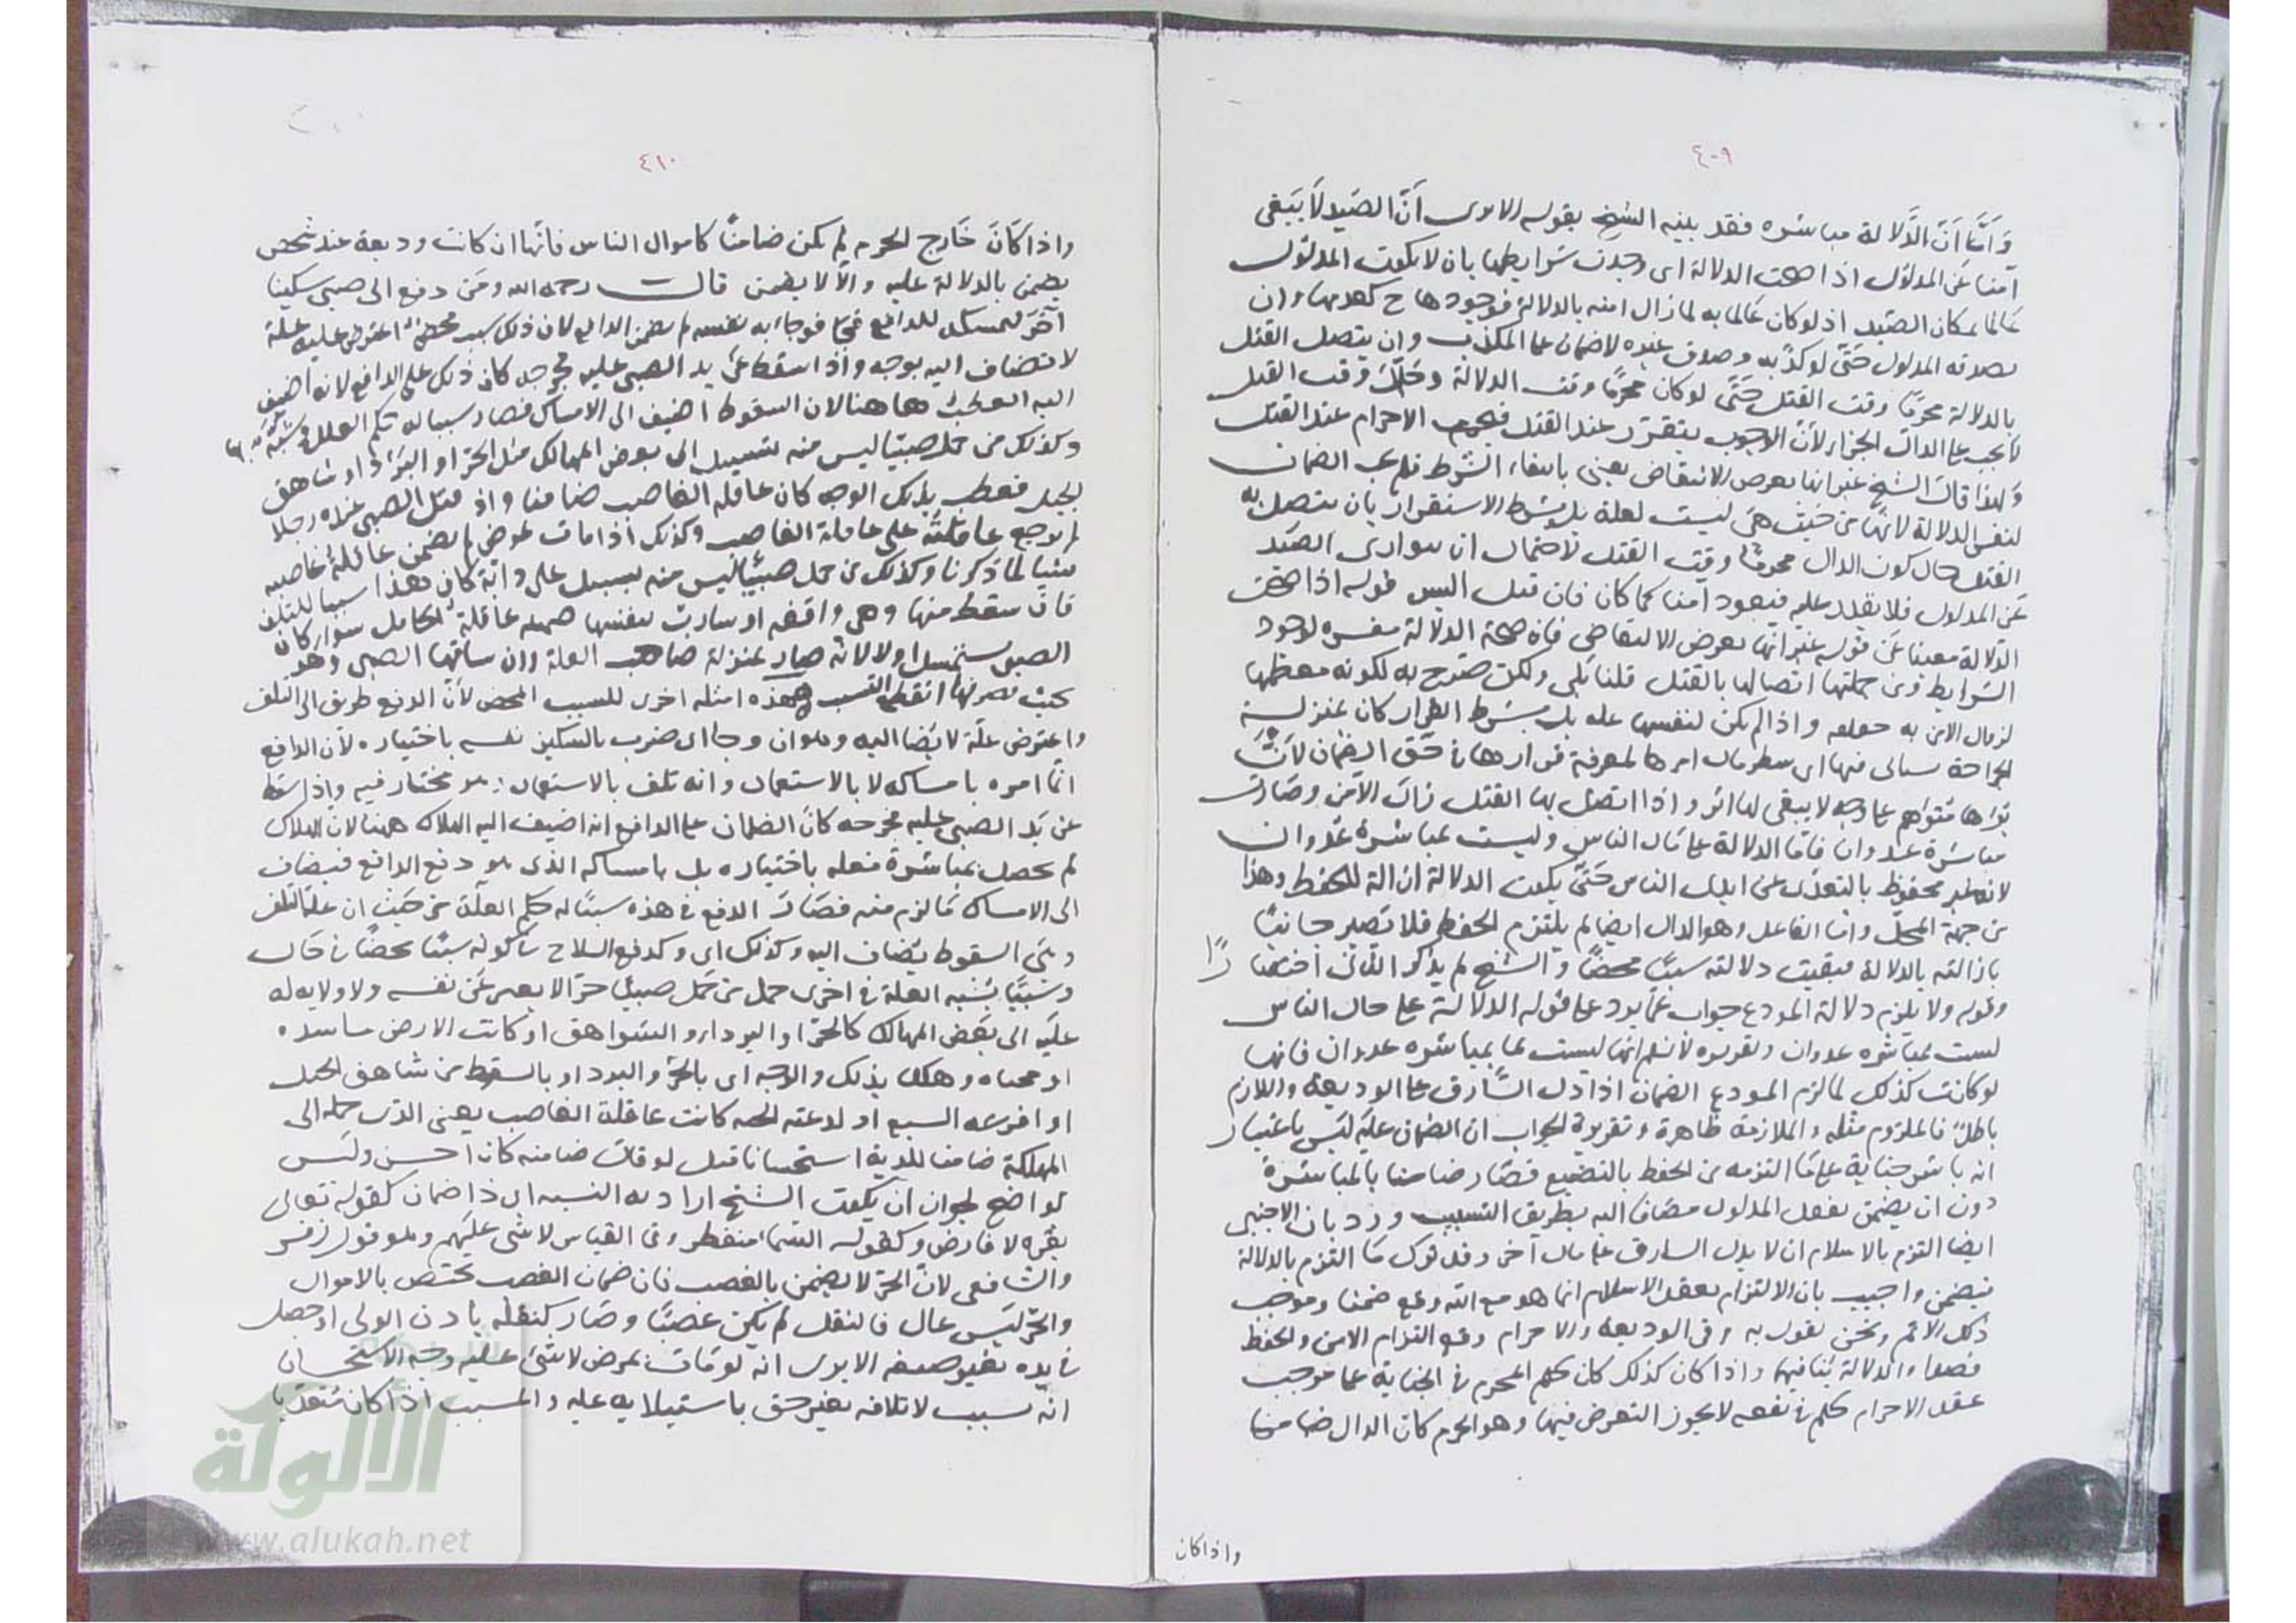 ٤٠٩
وَأَمَّا أَنَّ الدَّلالة مباشره فقد بينه الشيخ بقوله الا يرى أَنَّ الصَيد لاَ يَبَقى
آمنا عَن المدلول اذا صحت الدلالة اى وجدت شرايطها بان لا يكون المدلول
عَالما بمكان الصَيد اذ لو كان عَالما به لما زال امنه بالدلالة فوجودها ح كعدمها وان
يصدقه المدلول حَتّى لو كذّبه وصدق غيره لا ضمان على المكذب وان يتصل القتل
بالدلالة محرمًا وقت القتل حَتَّى لو كان محرمًا وقت الدلالة وحَلَّ وقت القتل
لا يجب على الدال الجزاء لأنّ الوجوب يتقرر عند القتل فيعتبر الاحرام عند القتل
وَلهذا قال الشيخ غير انها بعرض الانتقاض يعنى بانتفاء الشرط فلم يجب الضمان
لنفس الدلالة لانّها من حَيث هىَ ليست لعلة بل بشرط الاستقرار بان يتصل به
القتل حال كون الدال محرمًا وقت القتل لاحتمال ان يتوارى الصَيد
عَن المدلول فلا يقدر عليه فيعود آمنا كما كان فان قيل اليس قوله اذا صحت
الدّلالة مغنيا عَن قوله غير انها بعرض الانتقاض فان صحة الدلالة مفسره لوجود
الشرايط ومن جملتها اتصالها بالقتل قلنا بَلى ولكن صَرّح به لكونه معظمها
لزوال الامن به واذا لم يكن لنفسها عله بل بشرط القرار كان بمنزلة
الجراحة يستانى فيها اى ينظر مال امرها لمعرفة قرارها فى حَقّ الضمان لانَّ
برَاها مُتوَهم على وجه لا يبقى لها اثر واذا اتصل بها القتل زال الأمن وصَارت
مباشرة عدوان فامّا الدلالة على مَال الناس وليست بمباشرة عُدوان
لانه غير محفوظ بالبعد عن ايدى الناس حَتّى يكون الدلالة ازالة للحفظ وهذا
من جهة المحلّ واما الفاعل وهو الدال ايضا لم يلتزم الحفظ فلا تَصير جانيًا
بازالته بالدلالة فبقيت دلالته سببًا محضًا والشيخ لم يذكر الثانى اختصَا رًا
وقوله ولا يلزم دلالة المودع جواب عمّا يرد على قوله الدلالة على مال الناس
ليست بمباشره عدوان وتقريره لا نسلم انها ليست بمباشره عدوان فانها
لو كانت كذلك لما لزم المودع الضمان اذا دل السَّارق على الوديعة واللازم
باطلٌ فالملزوم مثله والملازمة ظاهرة وتقرير الجواب ان الضمان عليَه ليَس باعتبار
انه باشر جناية على مَا التزمه من الحفظ بالتضييع فصَار ضامنا بالمباشرة
دون ان يضمن بفعل المدلول مضَافا اليه بطريق التسبيب ورد بان الاجنبى
ايضا التزم بالاسلام ان لا يدل السارق على مال آخر وقد ترك مَا التزم بالدلالة
فيضمن واجيب بان الالتزام بعقد الاسلام انما هو مع الله وقع ضمنا وموجب
ذلك الاثم ونحن نقول به وفى الوديعة والاحرام وقع التزام الامن والحفظ
قصدا والدلالة ينافيها واذا كان كذلك كان حكم المحرم فى الجناية على موجب
عقد الاحرام كحكم فى بقعه لا يجوز التعرض فيها وهو الحرم كان الدال ضامنا
واذا كان
٤١٠
واذا كَانَ خَارج الحرم لم يكن ضامنًا كاموال الناس فانّها ان كانت وديعة عند شخص
يضمن بالدلالة عليه والّا لا يضمن قالــت رحمه الله ومَن دفع الى صبى سكينا
آخرَ ليمسكه للدافع فوجا به نفسه لم يضمن الدافع لان ذلك سبب محض اعترض عليه علة
لا تضاف اليه بوجه واذا سقط عَن يد الصبى عليه فجرحه كان ذلك على الدافع لانه اضيف
اليه العطب هاهنا لان السقوط اضيف الى الامساك فصار سببا له حكم العلل
وكذلك من حمل صبيّا ليس منه بسبيل الى بعض المهالك مثل الحرّ او البَرد او شاهق
الجبل فعطب بذلك الوجه كان عاقلة الغاصب ضامنا واذا قتل الصبى عنده رجلا
لم يرجع عاقلته على عاقلة الغاصب وكذلك اذا مات بمرض لم يضمن عاقلة غاصبه
شيئا لما ذكرنا وكذلك من حمل صبيّا ليس منه بسبيل على دابّة كان هذا سببا للتلف
فان سقط منها وهى واقفه او سارت بنفسها ضمنه عاقلة الحامل سواء كان
الصبى يستمسك او لا لانه صار بمنزلة صاحب العلة وان ساقها الصبى وهو
بحيث يصرفها انقطع التسبب وهذه امثله اخرى للسبب المحض لأنّ الدفع طريق الى التلف
واعترض علّة لا يُضا اليه وهو ان وجا اى ضرب بالسّكين نفسه باختياره لأن الدافع
انّما امره بامساكه لا بالاستعمال وانه تلف بالاستعمال وهو مختار فيه واذا سَقط
عَن يَد الصبى عليه فجرحه كانَ الضمان على الدافع انه اضيف اليه الهلاك ههنا لان الهلاك
لم يحصل بمباشرة فعله باختياره بل بامساكه الذى هو دفع الدافع فيضاف
الى الامساك مَا لزم منه فصَار الدفع فى هذه سببًا له حكم العلّة من حَيث ان علّة التلف
وهىَ السقوط يُضاف اليه وكذلك اى وكدفع السلاح سا كونه سببًا محضًا فى حَال
وسَببًا يُشبِه العلة فى اخرى حمل من حَمل صبيًا حرًّا لا يعبر عَن نفسه ولا ولايه له
عليَه الى بَعض المهالك كالحرّ او البرد او الشواهق او كانت الارض مأسدة
او محياه وهلك بذلك والوجه اى بالحرّ والبرد او بالسقوط من شاهق الجبل
او افترسه السبع او لدغته الحيه كانت عاقلة الغاصب يعنى الذى حمله الى
المهلكة ضامنا للدية استحسانا قيل لو قال ضامنه كان احسن وليَس
بواضح لجواز ان يكون الشيخ اراد به النسبه اى ذا ضمان كقوله تعالى
بقره لا فارض وكقوله السّماء منفطر وفى القياس لا شى عليَهم وهو قول زفر
والشافعى لانّ الحرّ لا يضمن بالغصب فان ضمان الغصب يختص بالاموال
والحرّ ليَس بمال فالنقل لم يكن غصبًا وصَار كنقله باذن الولى او حصل
فى يده بغير صنعه الا يرى انه لو مَات بمرض لا شئ عليه وجه الاستحسان
انّه تسبب لاتلافه بغير حق باستيلايه عليه والمسبب اذا كان مُتعدّيا
الألوكة
www.alukah.net